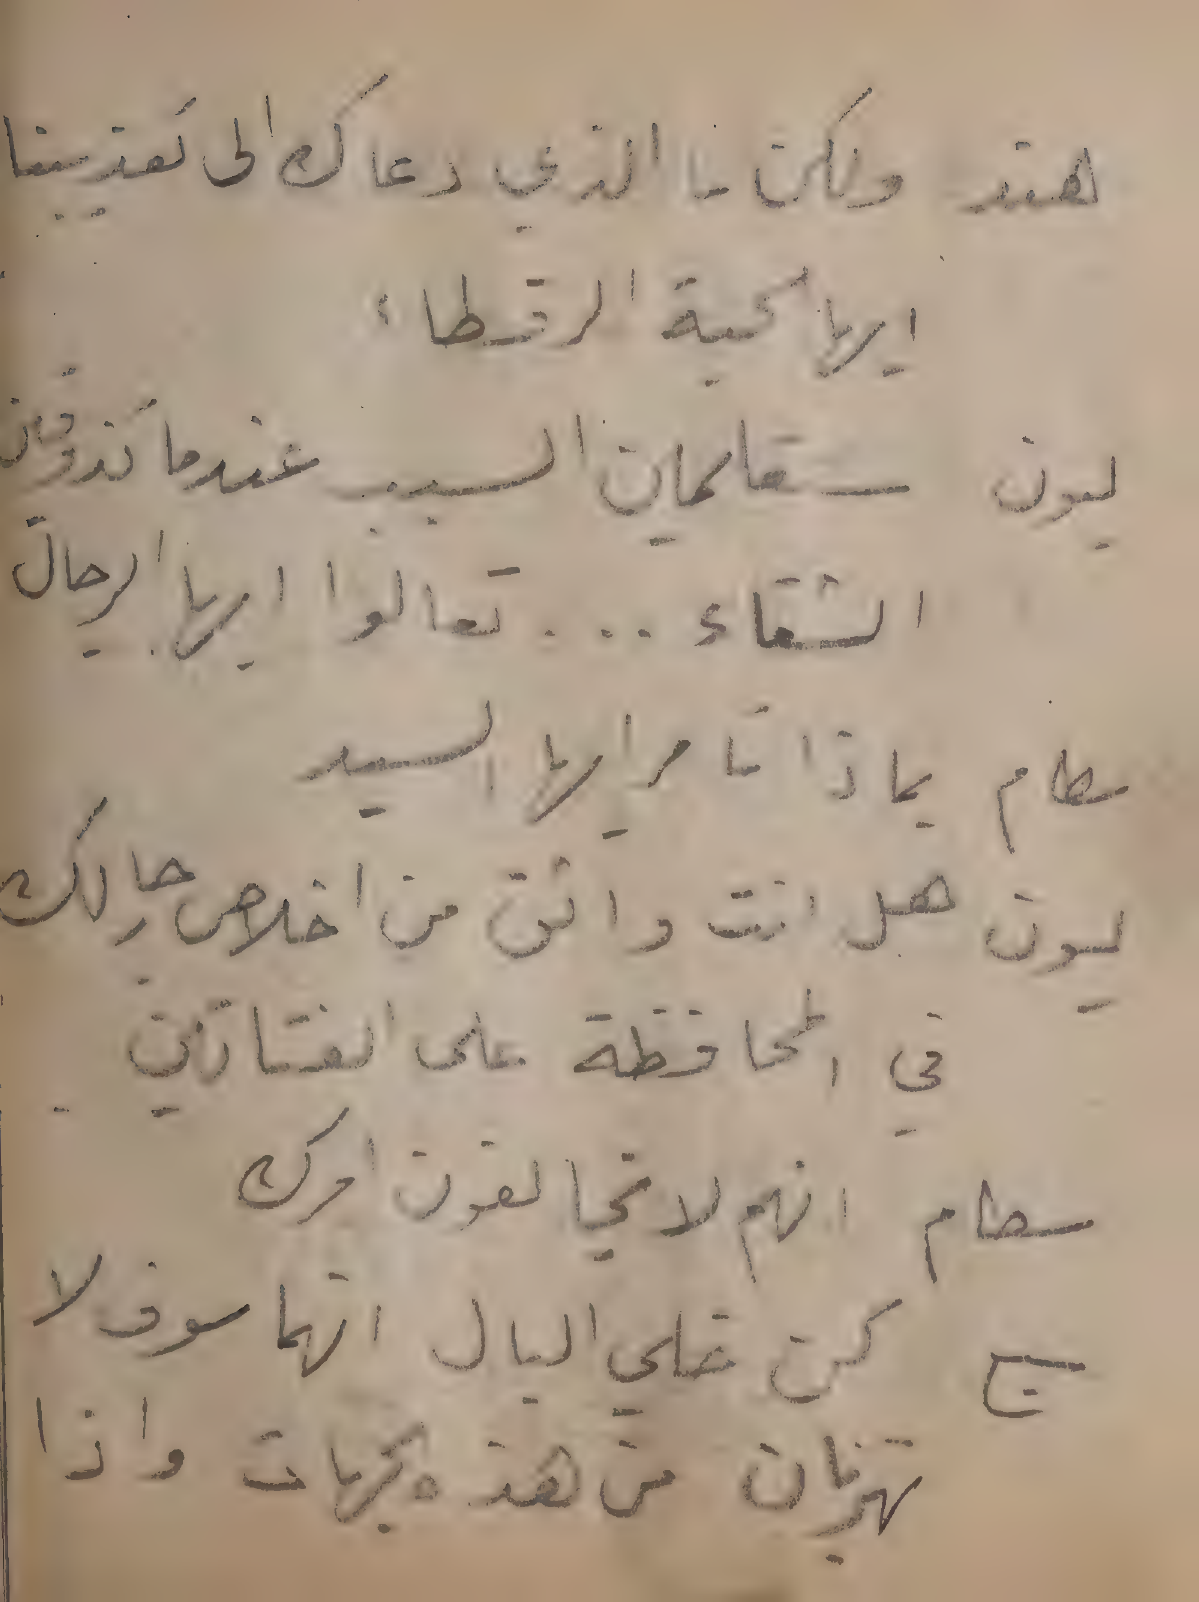 هند ولكن ما الذي دعاك الى تعذيبنا
ايها الحية الرقطاء
ليون ستعلمان السبب عندما تذوقان
الشقاء ... تعالوا ايها الرجال
سطام بماذا تأمر ايها السيد
ليون هل انت واثق من اخلاص رجالك
في المحافظة على الفتاتين
سطام انهم لا يخالفون امرك
كن خلي البال انهما سوف لا
تهربان من هذه الجهات واذا